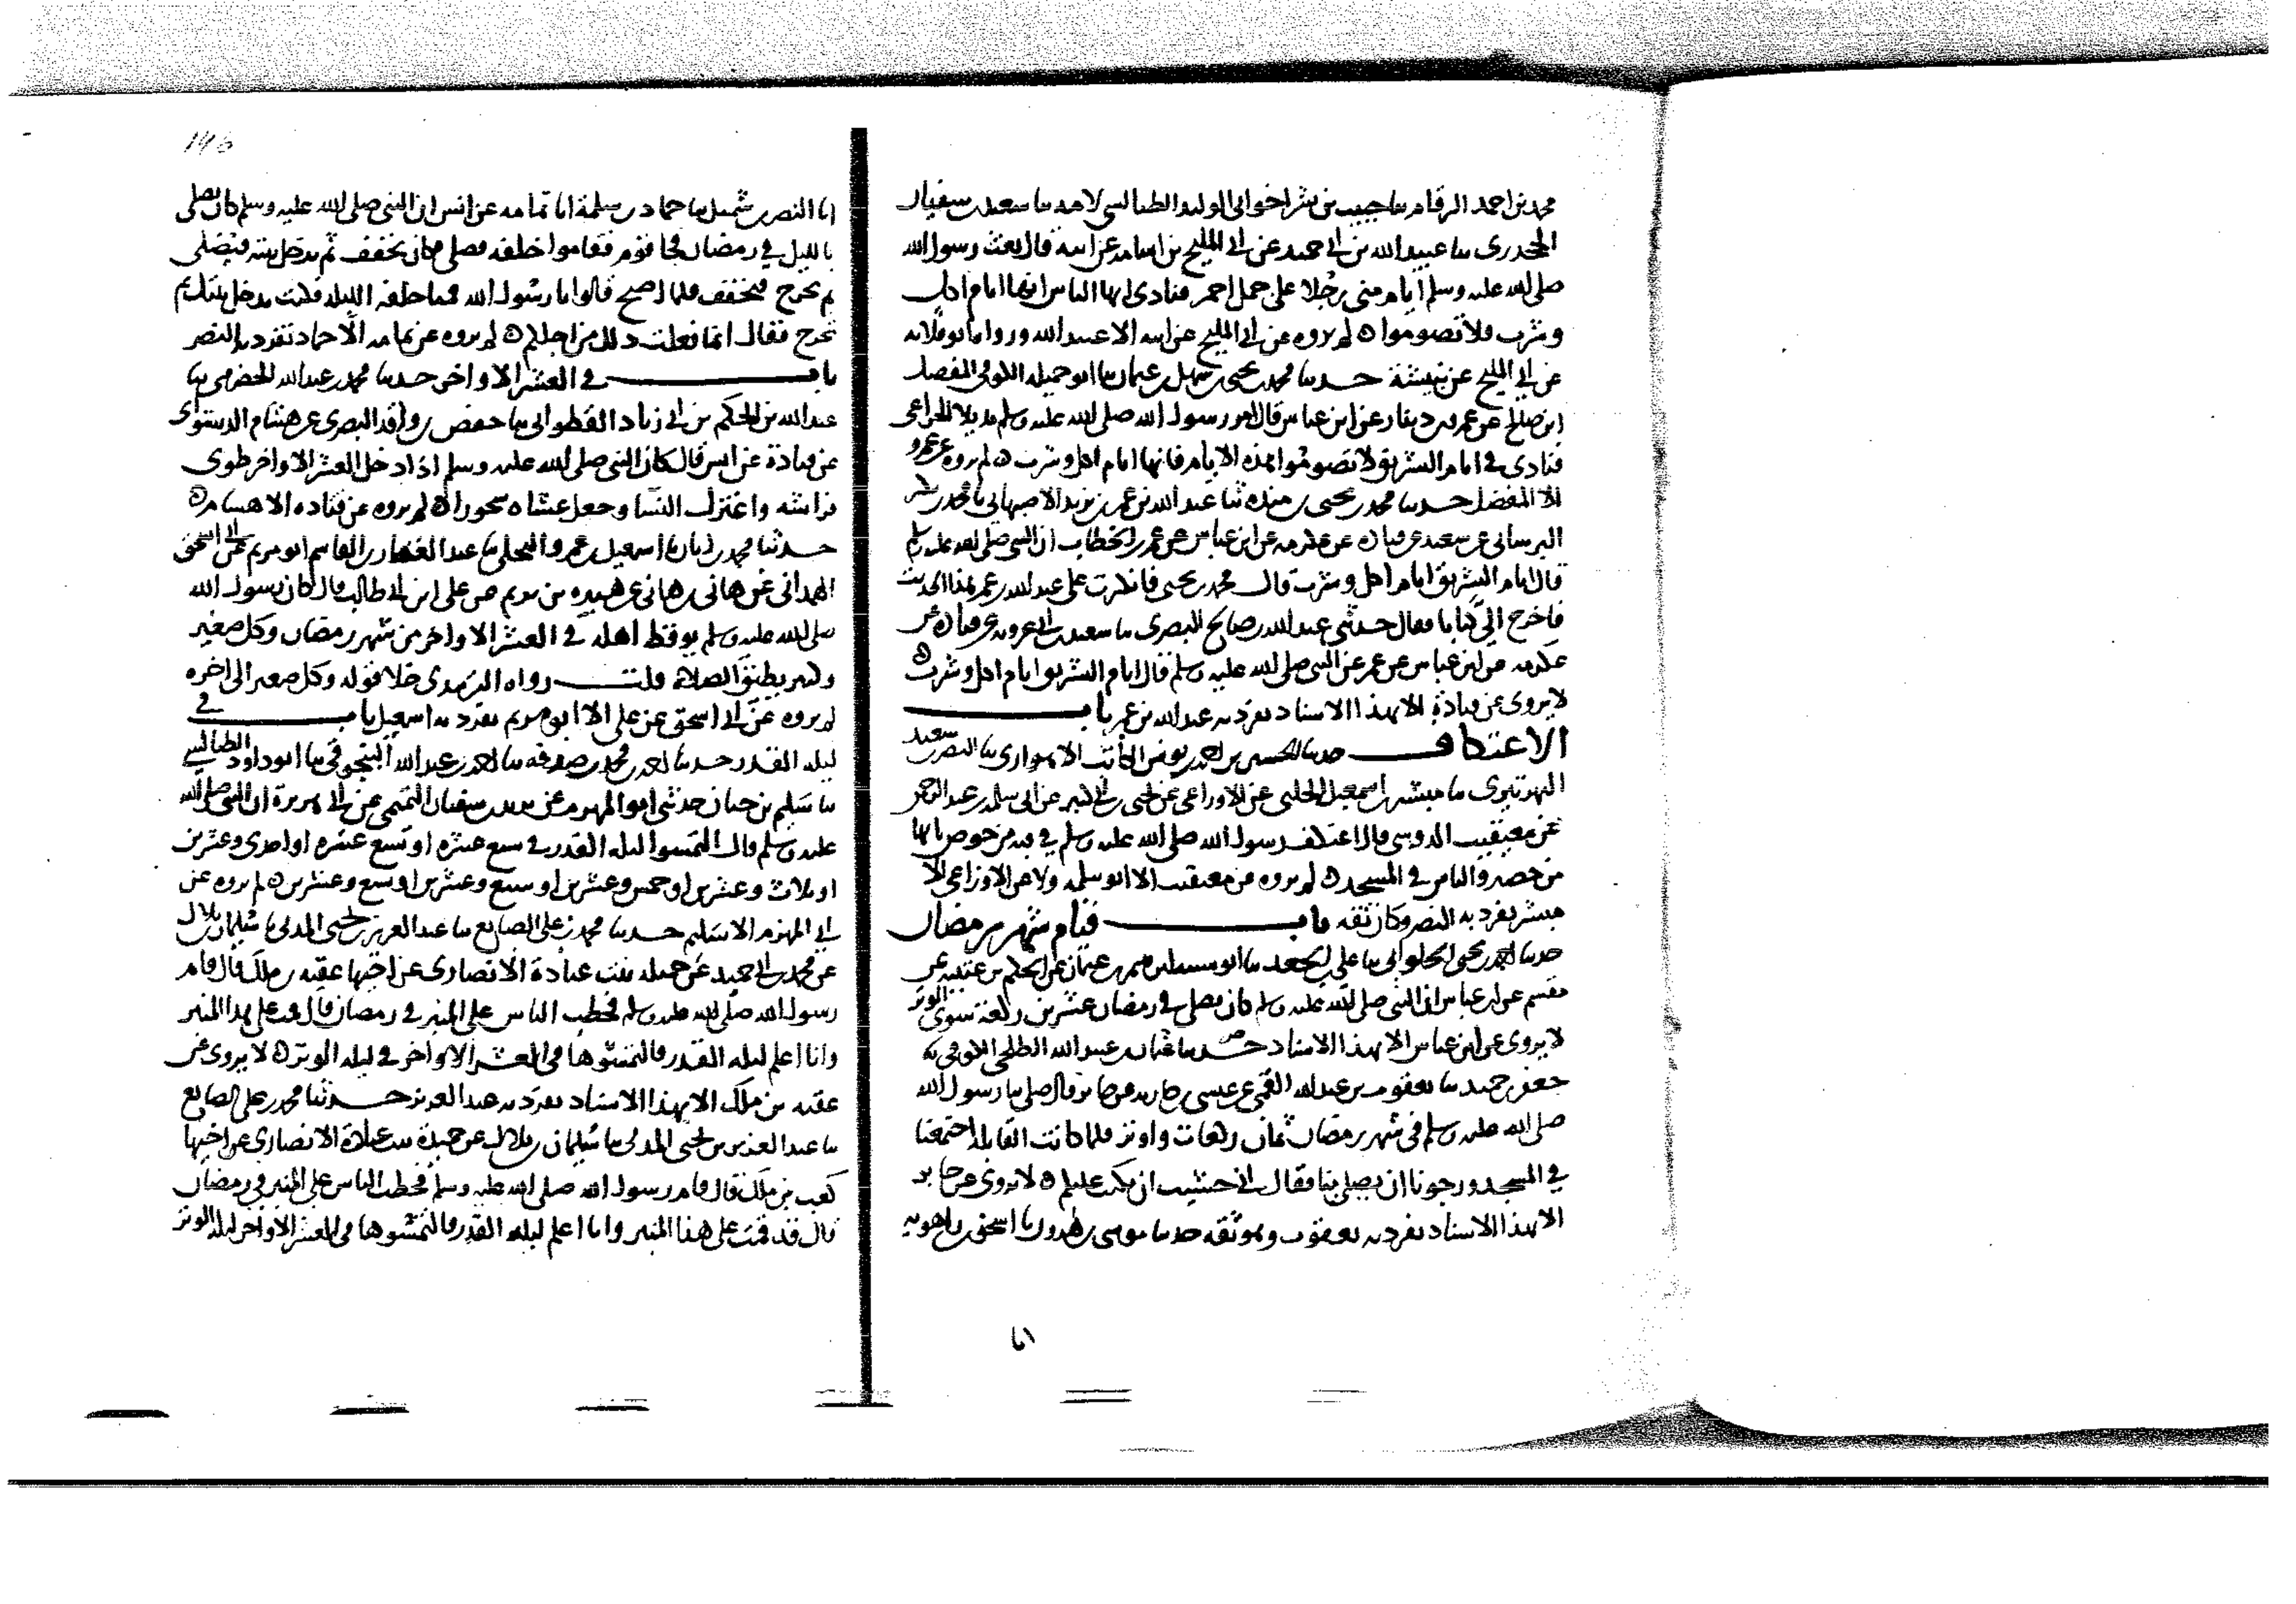 محمد بن احمد الرقام ثنا حبيب بن بشر اخو ابي الوليد الطيالسي لامه ثنا سعيد بن سفيان
الجحدري ثنا عبيد الله بن ابي حميد عن ابي المليح بن اسامة عن ابيه قال بعث رسول الله
صلى الله عليه وسلم ايام منى رجلا على جمل احمر فنادى ايها الناس انها ايام اكل
وشرب فلا تصوموا ه لم يروه عن ابي المليح عن ابيه الا عبيد الله ورواه ابو قلابه
عن ابي المليح عن نبيشة حدثنا محمد بن يحيى بن سهل بن عثمان ثنا ابو جميله الكوفي المفضل
ابن صالح عن عمرو بن دينار عن ابن عباس قال امر رسول الله صلى الله عليه وسلم بديلا الخزاعي
فنادى في ايام التشريق لا تصوموا هذه الايام فانها ايام اكل وشرب ه لم يروه عن عمرو
الا المفضل حدثنا محمد بن يحيى بن منده ثنا عبد الله بن عمر بن يزيد الاصبهاني ثنا محمد بن بكر
البرساني عن سعيد عن قتادة عن عكرمه عن ابن عباس عن عمر بن الخطاب ان النبي صلى الله عليه وسلم
قال ايام التشريق ايام اكل وشرب قال محمد بن يحيى فانكرت على عبد الله بن عمر هذا الحديث
فاخرج الي كتابا فقال حدثني عبد الله بن صالح البصري ثنا سعيد بن ابي عروبه عن قتادة عن
عكرمه عن ابن عباس عن عمر عن النبي صلى الله عليه وسلم قال ايام التشريق ايام اكل وشرب ه
لا يروى عن قتادة الا بهذا الاسناد تفرد به عبد الله بن عمر باب
الاعتكاف حدثنا الحسين بن احمد بن يونس الكاتب الاهوازي ثنا النضر بن سعيد
ثنا مبشر بن اسمعيل الحلبي عن الاوزاعي عن يحيى بن ابي كثير عن ابي سلمه بن عبد الرحمن
عن معيقيب الدوسي قال اعتكف رسول الله صلى الله عليه وسلم في قبه من خوص بابها
من حصير والناس في المسجد ه لم يروه عن معيقيب الا ابو سلمه ولا عن الاوزاعي الا
مبشر تفرد به النضر وكان ثقه باب قيام شهر رمضان
حدثنا احمد بن يحيى الحلواني ثنا علي بن الجعد ثنا ابو شيبه ابراهيم بن عثمان عن الحكم بن عتيبه عن
مقسم عن ابن عباس ان النبي صلى الله عليه وسلم كان يصلي في رمضان عشرين ركعة سوى الوتر
لا يروى عن ابن عباس الا بهذا الاسناد حدثنا عثمان بن عبيد الله الطلحي الكوفي ثنا
جعفر بن حميد ثنا يعقوب بن عبد الله القمي عن عيسى بن جاريه عن جابر قال صلى بنا رسول الله
صلى الله عليه وسلم في شهر رمضان ثمان ركعات واوتر فلما كانت القابله اجتمعنا
في المسجد ورجونا ان يصلي بنا فقال اني خشيت ان يكتب عليكم ه لا يروى عن جابر
الا بهذا الاسناد تفرد به يعقوب وهو ثقه حدثنا موسى بن هرون ثنا اسحق بن راهويه
انا
146
انا النضر بن شميل ثنا حماد بن سلمة انا ثمامه عن انس ان النبي صلى الله عليه وسلم كان يصلي
بالليل في رمضان فجا قوم فقاموا خلفه فصلى فكان يخفف ثم يدخل بيته فيصلي
ثم يخرج فيخفف فلما اصبح قالوا يا رسول الله قمنا خلفك الليله فكنت تدخل بيتك ثم
تخرج فقال انما فعلت ذلك من اجلكم ه لم يروه عن ثمامه الا حماد تفرد به النضر
باب في العشر الاواخر حدثنا محمد بن عبد الله الحضرمي ثنا
عبد الله بن الحكم بن ابي زياد القطواني ثنا حفص بن واقد البصري عن هشام الدستوائي
عن قتادة عن انس قال كان النبي صلى الله عليه وسلم اذا دخل العشر الاواخر طوى
فراشه واعتزل النسا وجعل عشاه سحورا ه لم يروه عن قتاده الا هشام ه
حدثنا محمد بن ابان ثنا اسمعيل بن عمرو البجلي ثنا عبد الغفار بن القاسم ابو مريم عن ابي اسحق
الهمداني عن هاني بن هاني عن هبيره بن يريم عن علي ابن ابي طالب قال كان رسول الله
صلى الله عليه وسلم يوقظ اهله في العشر الاواخر من شهر رمضان وكل صغير
وكبير يطيق الصلاة قلت رواه الترمذي خلا قوله وكل صغير الى اخره
لم يروه عن ابي اسحق عن علي الا ابو مريم تفرد به اسمعيل باب في
ليله القدر حدثنا احمد بن محمد بن صدقه ثنا احمد بن عبد الله المنجوفي ثنا ابو داود الطيالسي
ثنا سليم بن حيان حدثني ابو المهزم عن يزيد بن سفيان التميمي عن ابي هريرة ان النبي صلى الله
عليه وسلم قال التمسوا ليله القدر في سبع عشره او تسع عشره او احدى وعشرين
او ثلاث وعشرين او خمس وعشرين او سبع وعشرين او تسع وعشرين ه لم يروه عن
ابي المهزم الا سليم حدثنا محمد بن علي الصايغ ثنا عبد العزيز بن يحيى المدني ثنا سليمان بن بلال
عن محمد بن ابي حميد عن جميله بنت عبادة الانصاري عن اخيها عقبه بن ملك قال قام
رسول الله صلى الله عليه وسلم فخطب الناس على المنبر في رمضان قال قمت على هذا المنبر
وانا اعلم ليله القدر فالتمسوها في العشر الاواخر في ليله الوتر ه لا يروى عن
عقبه بن ملك الا بهذا الاسناد تفرد به عبد العزيز حدثنا محمد بن علي الصايغ
ثنا عبد العزيز بن يحيى المدني ثنا سليمان بن بلال عن بنت عبادة الانصاري عن اخيها
كعب بن ملك قال قام رسول الله صلى الله عليه وسلم فخطب الناس على المنبر في رمضان
قال قد قمت على هذا المنبر وانا اعلم ليله القدر فالتمسوها في العشر الاواخر ليله الوتر